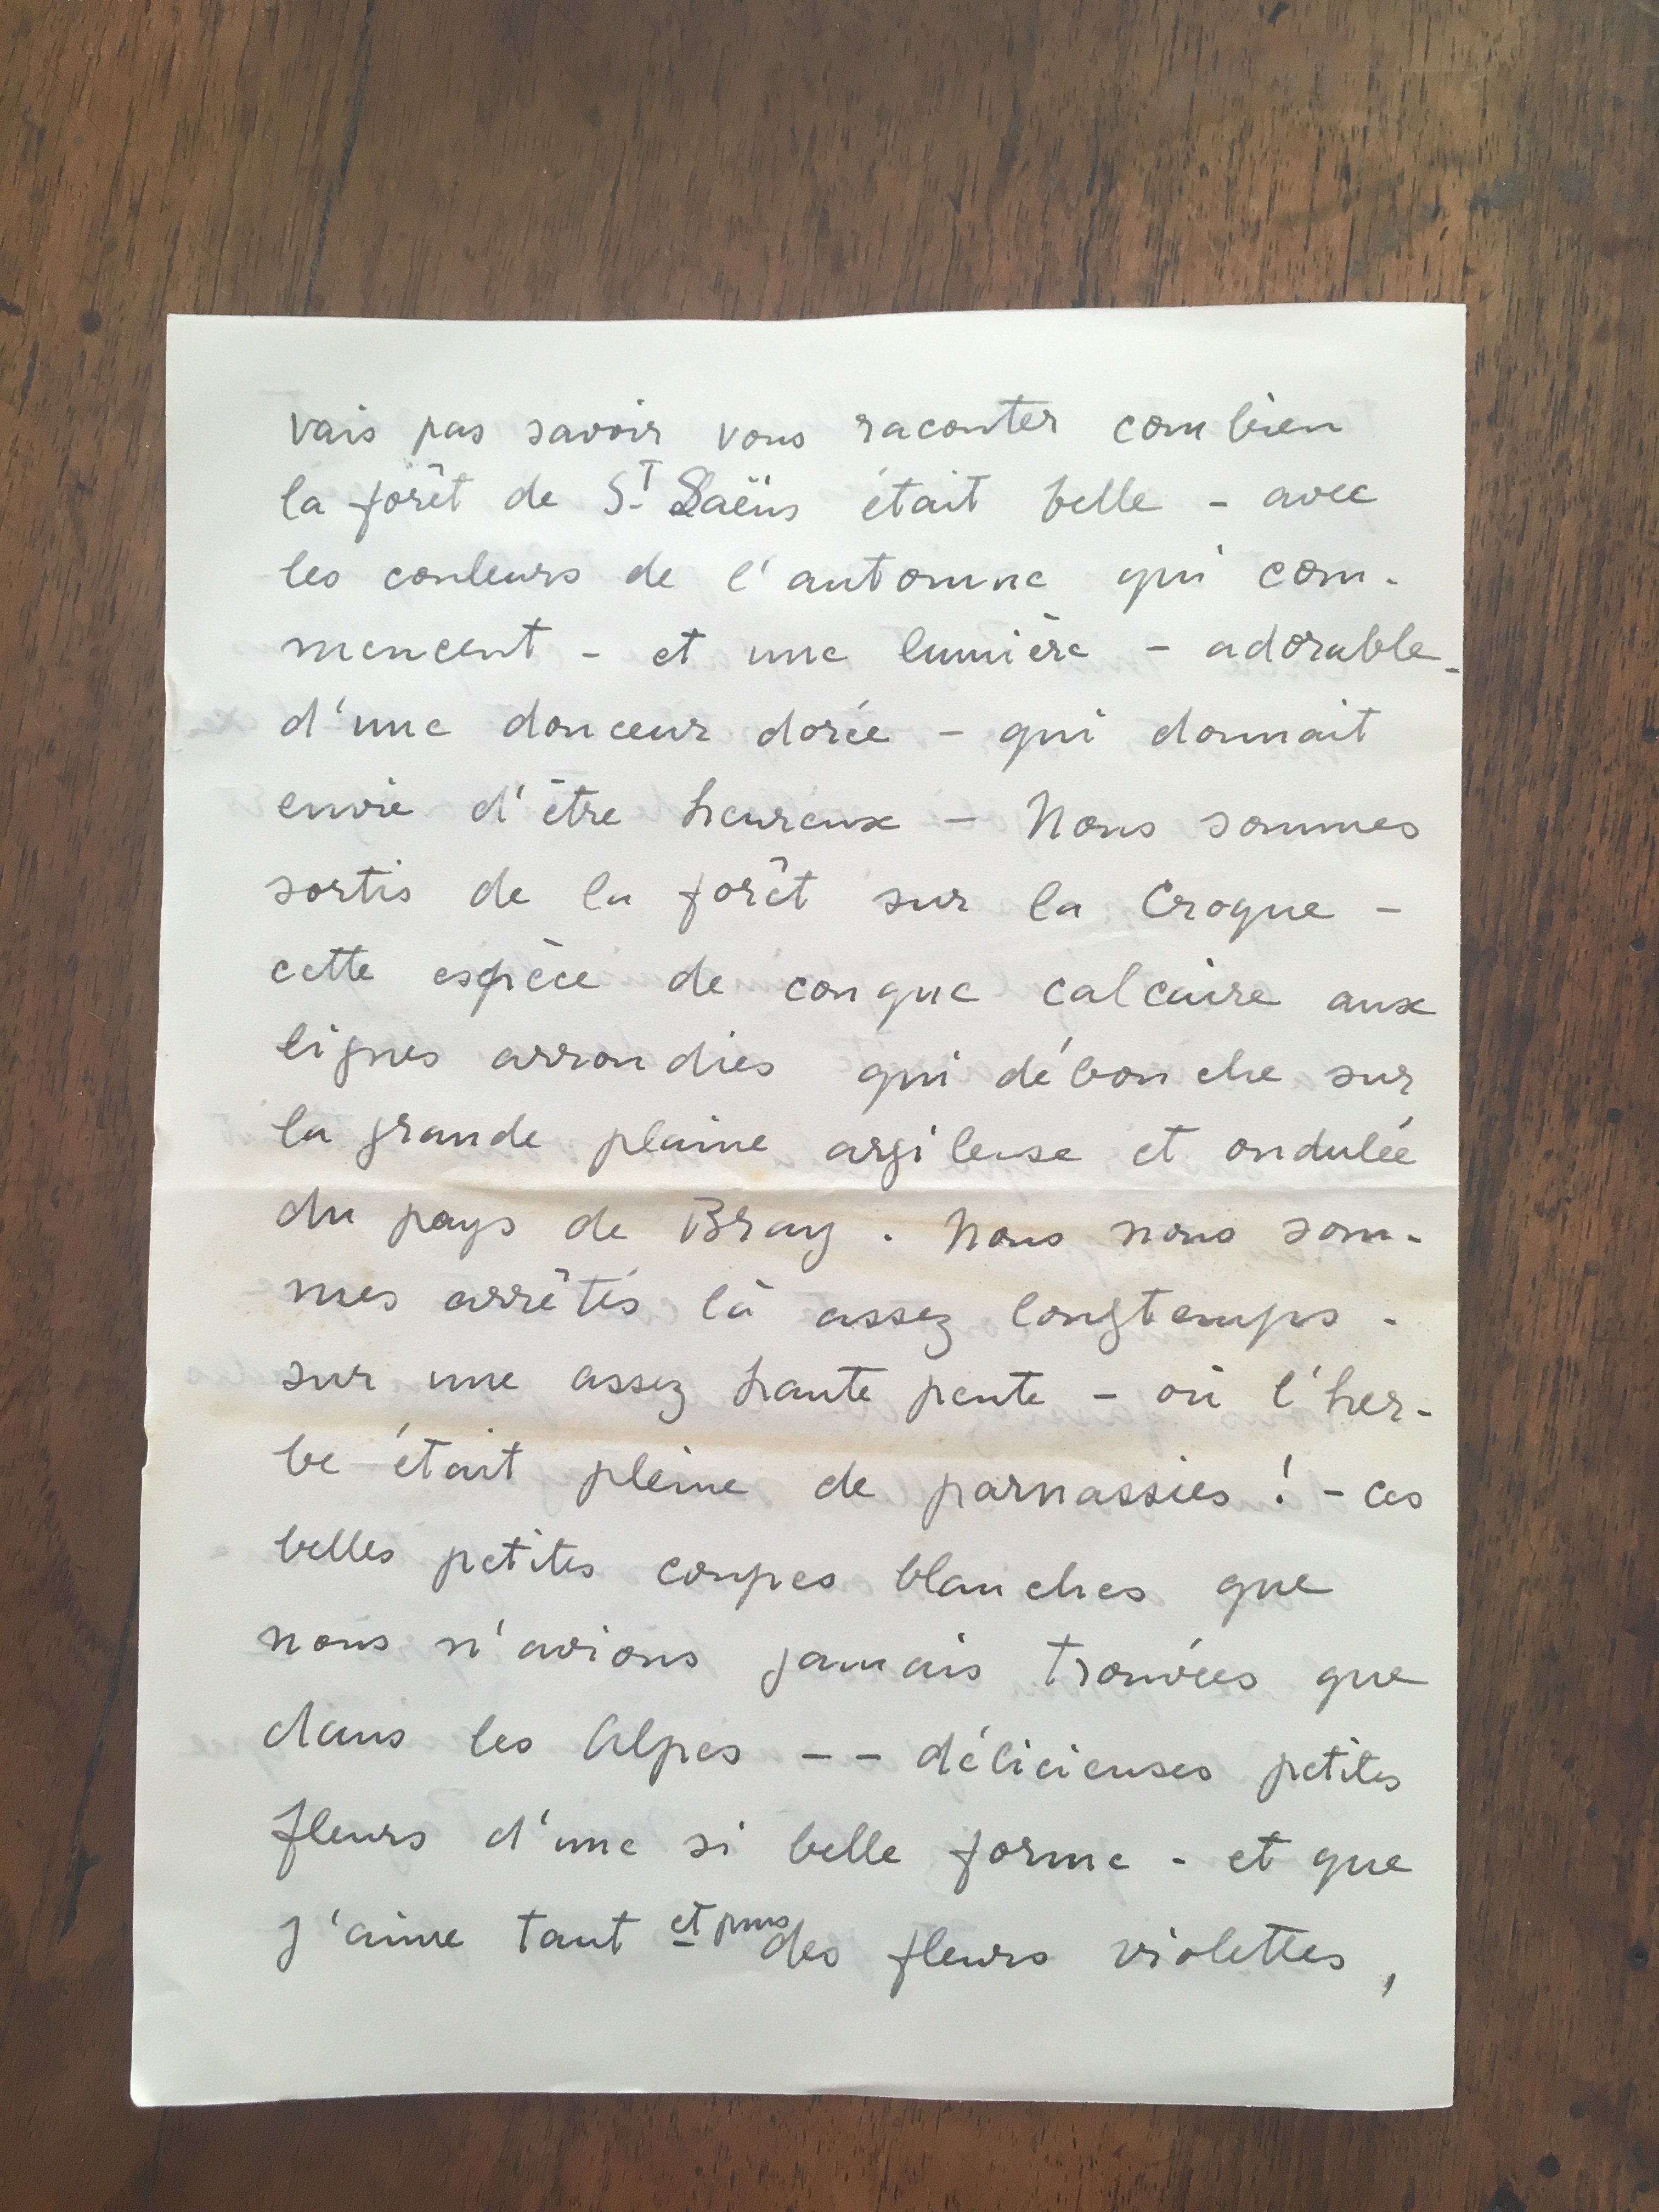 vais pas savoir vous raconter combien
la forêt de S.T Saëns était belle - avec
les couleurs de l'automne qui com-
mencent - et une lumière - adorable -
d'une douceur dorée - qui donnait
envie d'être heureux - Nous sommes
sortis de la forêt sur la Croque -
cette espèce de conque calcaire aux
lignes arrondies qui débouche sur
la grande plaine argileuse et ondulée
du pays de Bray. Nous nous som-
mes arrêtés là assez longtemps -
sur une assez haute pente - où l'her-
be était pleine de parnassies ! - ces
belles petites coupes blanches que
nous n'avions jamais trouvées que
dans les Alpes - - délicieuses petites
fleurs d'une si belle forme - et que
j'aime tant et puis des fleurs violettes,